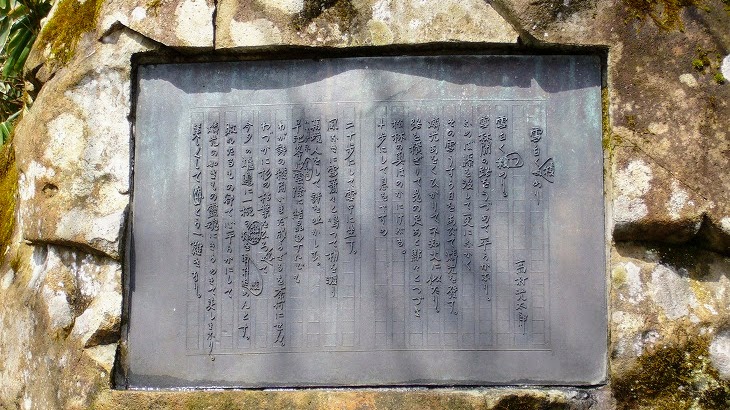 雪白く積めり
高村光太郎
雪白く積めり。
雪林間の路をうづめて平らかなり。
ふめば膝を没して更にふかく
その雪うすら日をあびて燐光を発す。
燐光あをくひかりて不知火に似たり。
路を横ぎりて兎の足あと点々とつづき
松林の奥ほのかにけぶる。
十歩にして息をやすめ
二十歩にして雪中に坐す。
風なきに雪蕭々と鳴つて梢を渡り
万境人をして詩を吐かしむ。
早池峯はすでに雲際に結晶すれども
わが詩の稜角いまだ成らざるを奈何にせん。
わづかに杉の枯葉をひろひて
今夕の炉辺に一椀の雑炊を煖めんとす。
敗れたるもの卻て心平らかにして
燐光の如きもの霊魂にきらめきて美しきなり。
美しくしてつひにとらへ難きなり。